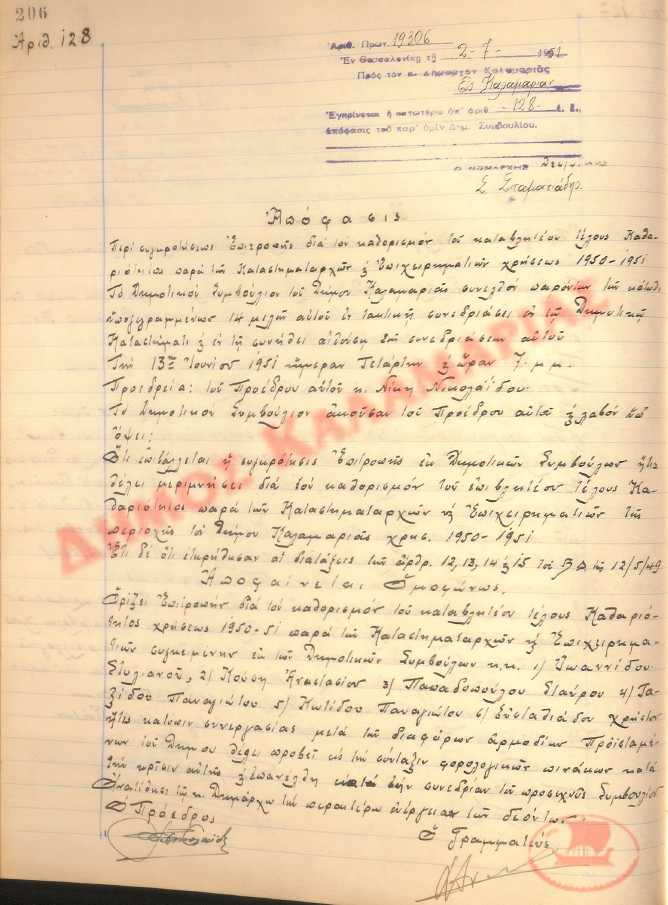 206
Ἀριθ. 128
Ἀριθ. Πρωτ. 19306
Ἐν Θεσσαλονίκῃ τῇ 2-7- 1951
Πρὸς τὸν κ. Δήμαρχον Καλαμαριᾶς
Εἰς Καλαμαριάν
Ἐγκρίνεται ἡ κατωτέρω ὑπ' ἀριθ. -128- ἐ. ἔ.
ἀπόφασις τοῦ παρ' ὑμῖν Δημ. Συμβουλίου.
Ο ΝΟΜΑΡΧΗΣ
Σ. Σταματιάδης
Ἀπόφασις
Περί συγκροτήσεως Ἐπιτροπῆς διά τόν καθορισμόν τοῦ καταβλητέου τέλους Καθα-
ριότητος παρά τῶν Καταστηματαρχῶν & Ἐπιχειρηματιῶν χρήσεως 1950-1951
Τό Δημοτικόν Συμβούλιον τοῦ Δήμου Καλαμαριᾶς συνελθόν παρόντων τῶν κάτωθι
ὑπογεγραμμένων 14 μελῶν αὐτοῦ ἐν τακτικῇ συνεδριάσει ἐν τῷ Δημοτικῷ
Καταστήματι & ἐν τῇ συνήθει αἰθούσῃ τῶν συνεδριάσεων αὐτοῦ
Τήν 13ην Ἰουνίου 1951 ἡμέραν Τετάρτην & ὥραν 7 μ.μ.
Προεδρεία: τοῦ Προέδρου αὐτοῦ κ. Νίκη Νικολαΐδου.
Τό Δημοτικόν Συμβούλιον ἀκοῦσαν τοῦ Προέδρου αὐτοῦ & λαβόν ὑπ'
ὄψει:
Ὅτι ἐπιβάλλεται ἡ συγκρότησις Ἐπιτροπῆς ἐκ Δημοτικῶν Συμβούλων ἥτις
θέλει μεριμνήσει διά τόν καθορισμόν τοῦ ἐπιβλητέου τέλους Κα-
θαριότητος παρά τῶν Καταστηματαρχῶν & Ἐπιχειρηματιῶν τῆς
περιοχῆς τοῦ Δήμου Καλαμαριᾶς χρήσ. 1950-1951
Ἔτι δέ ὅτι ἐτηρήθησαν αἱ διατάξεις τῶν ἄρθρ. 12, 13, 14 & 15 τοῦ Β.Δ. τῆς 12/5/49
Ἀποφαίνεται Ὁμοφώνως.
Ὁρίζει Ἐπιτροπήν διά τόν καθορισμόν τοῦ καταβλητέου τέλους Καθαριό-
τητος χρήσεως 1950-51 παρά τῶν Καταστηματαρχῶν & Ἐπιχειρημα-
τιῶν συγκειμένην ἐκ τῶν Δημοτικῶν Συμβούλων κ.κ. 1) Ἰωαννίδου
Στυλιανοῦ, 2) Κούση Ἀναστασίου 3) Παπαδοπούλου Σταύρου 4) Τα-
ξίδου Παναγιώτου 5) Κωτίδου Παναγιώτου 6) Εὐσταθιάδου Χρήστου
ἥτις κατόπιν συνεργασίας μετά τῶν διαφόρων ἁρμοδίων Προϊσταμέ-
νων τοῦ Δήμου θέλει προβεῖ εἰς τήν σύνταξιν φορολογικῶν πινάκων κατά
τήν κρίσιν αὐτῆς & ἐπανέλθῃ κατά τήν συνεδρίαν τοῦ προσεχοῦς Συμβουλίου
Ἀνατίθησι τῷ κ. Δημάρχῳ τήν περαιτέρω ἐνέργειαν τῶν δεόντων.
Ὁ Πρόεδρος
Ὁ Γραμματεύς
ΔΗΜΟΣ ΚΑΛΑΜΑΡΙΑΣ